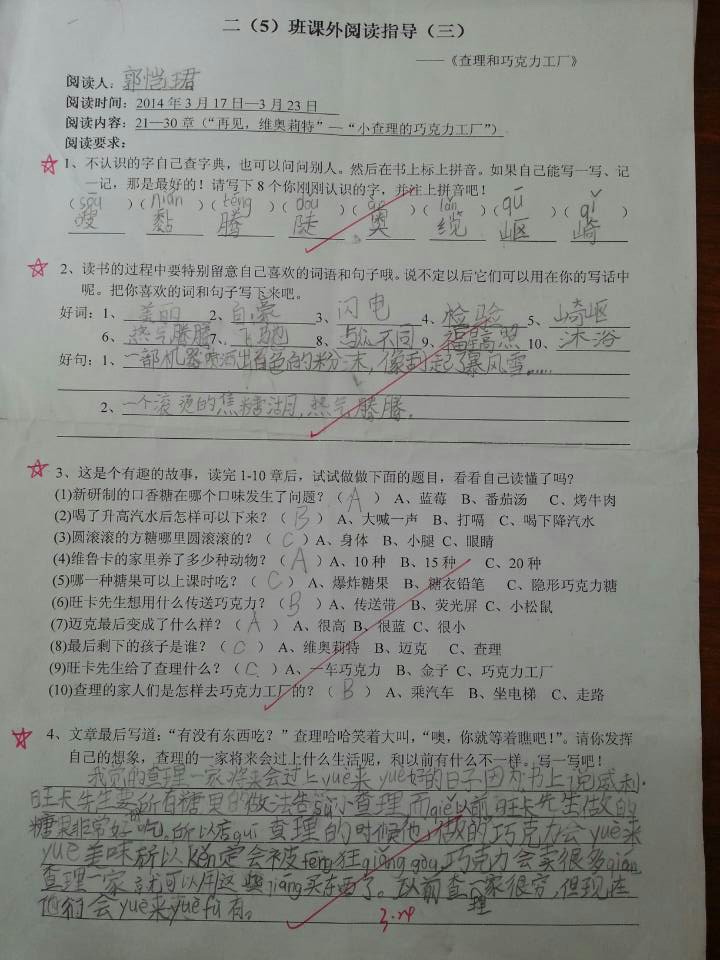 二（5）班课外阅读指导（三）
——《查理和巧克力工厂》
阅读人：郭恺珺
阅读时间：2014年3月17日—3月23日
阅读内容：21—30章（“再见，维奥莉特”—“小查理的巧克力工厂”）
阅读要求：
1、不认识的字自己查字典，也可以问问别人。然后在书上标上拼音。如果自己能写一写、记
一记，那是最好的！请写下8个你刚刚认识的字，并注上拼音吧！
（sōu）（nián）（téng）（dǒu）（ào）（lǎn）（qū）（qí）
嗖 黏 腾 陡 奥 缆 岖 崎
2、读书的过程中要特别留意自己喜欢的词语和句子哦。说不定以后它们可以用在你的写话中
呢。把你喜欢的词和句子写下来吧。
好词：1、美丽 2、自豪 3、闪电 4、检验 5、崎岖
6、热气腾腾 7、飞驰 8、与众不同 9、福星高照 10、沐浴
好句：1、一部机器喷洒出白色的粉沫，像刮起了暴风雪……
2、一个滚烫的焦糖湖，热气腾腾。
3、这是个有趣的故事，读完1-10章后，试试做做下面的题目，看看自己读懂了吗？
(1)新研制的口香糖在哪个口味发生了问题？（A） A、蓝莓 B、番茄汤 C、烤牛肉
(2)喝了升高汽水后怎样可以下来？（B） A、大喊一声 B、打嗝 C、喝下降汽水
(3)圆滚滚的方糖哪里圆滚滚的？（C）A、身体 B、小腿 C、眼睛
(4)维鲁卡的家里养了多少种动物？（A）A、10种 B、15种 C、20种
(5)哪一种糖果可以上课时吃？（C） A、爆炸糖果 B、糖衣铅笔 C、隐形巧克力糖
(6)旺卡先生想用什么传送巧克力？（B）A、传送带 B、荧光屏 C、小松鼠
(7)迈克最后变成了什么样？（A） A、很高 B、很蓝 C、很小
(8)最后剩下的孩子是谁？（C） A、维奥莉特 B、迈克 C、查理
(9)旺卡先生给了查理什么？（C）A、一车巧克力 B、金子 C、巧克力工厂
(10)查理的家人们是怎样去巧克力工厂的？（B） A、乘汽车 B、坐电梯 C、走路
4、文章最后写道：“有没有东西吃？”查理哈哈笑着大叫，“噢，你就等着瞧吧！”。请你发挥
自己的想象，查理的一家将来会过上什么生活呢，和以前有什么不一样。写一写吧！
我觉的查理一家将来会过上yuè来yuè好的日子因为书上说威利·
旺卡先生要所有糖里的做法告sù小查理而qiě以前旺卡先生做的
糖果非常好吃，所以店guī查理的时候他做的巧克力会yuè来
yuè美味所以kěn定会被fēng狂qiǎng gòu，巧克力会卖很多qián
查理一家就可以用这些jiāng买东西了。以前查理家很穷，但现在
他们会yuè来yuè fù有。
3.24